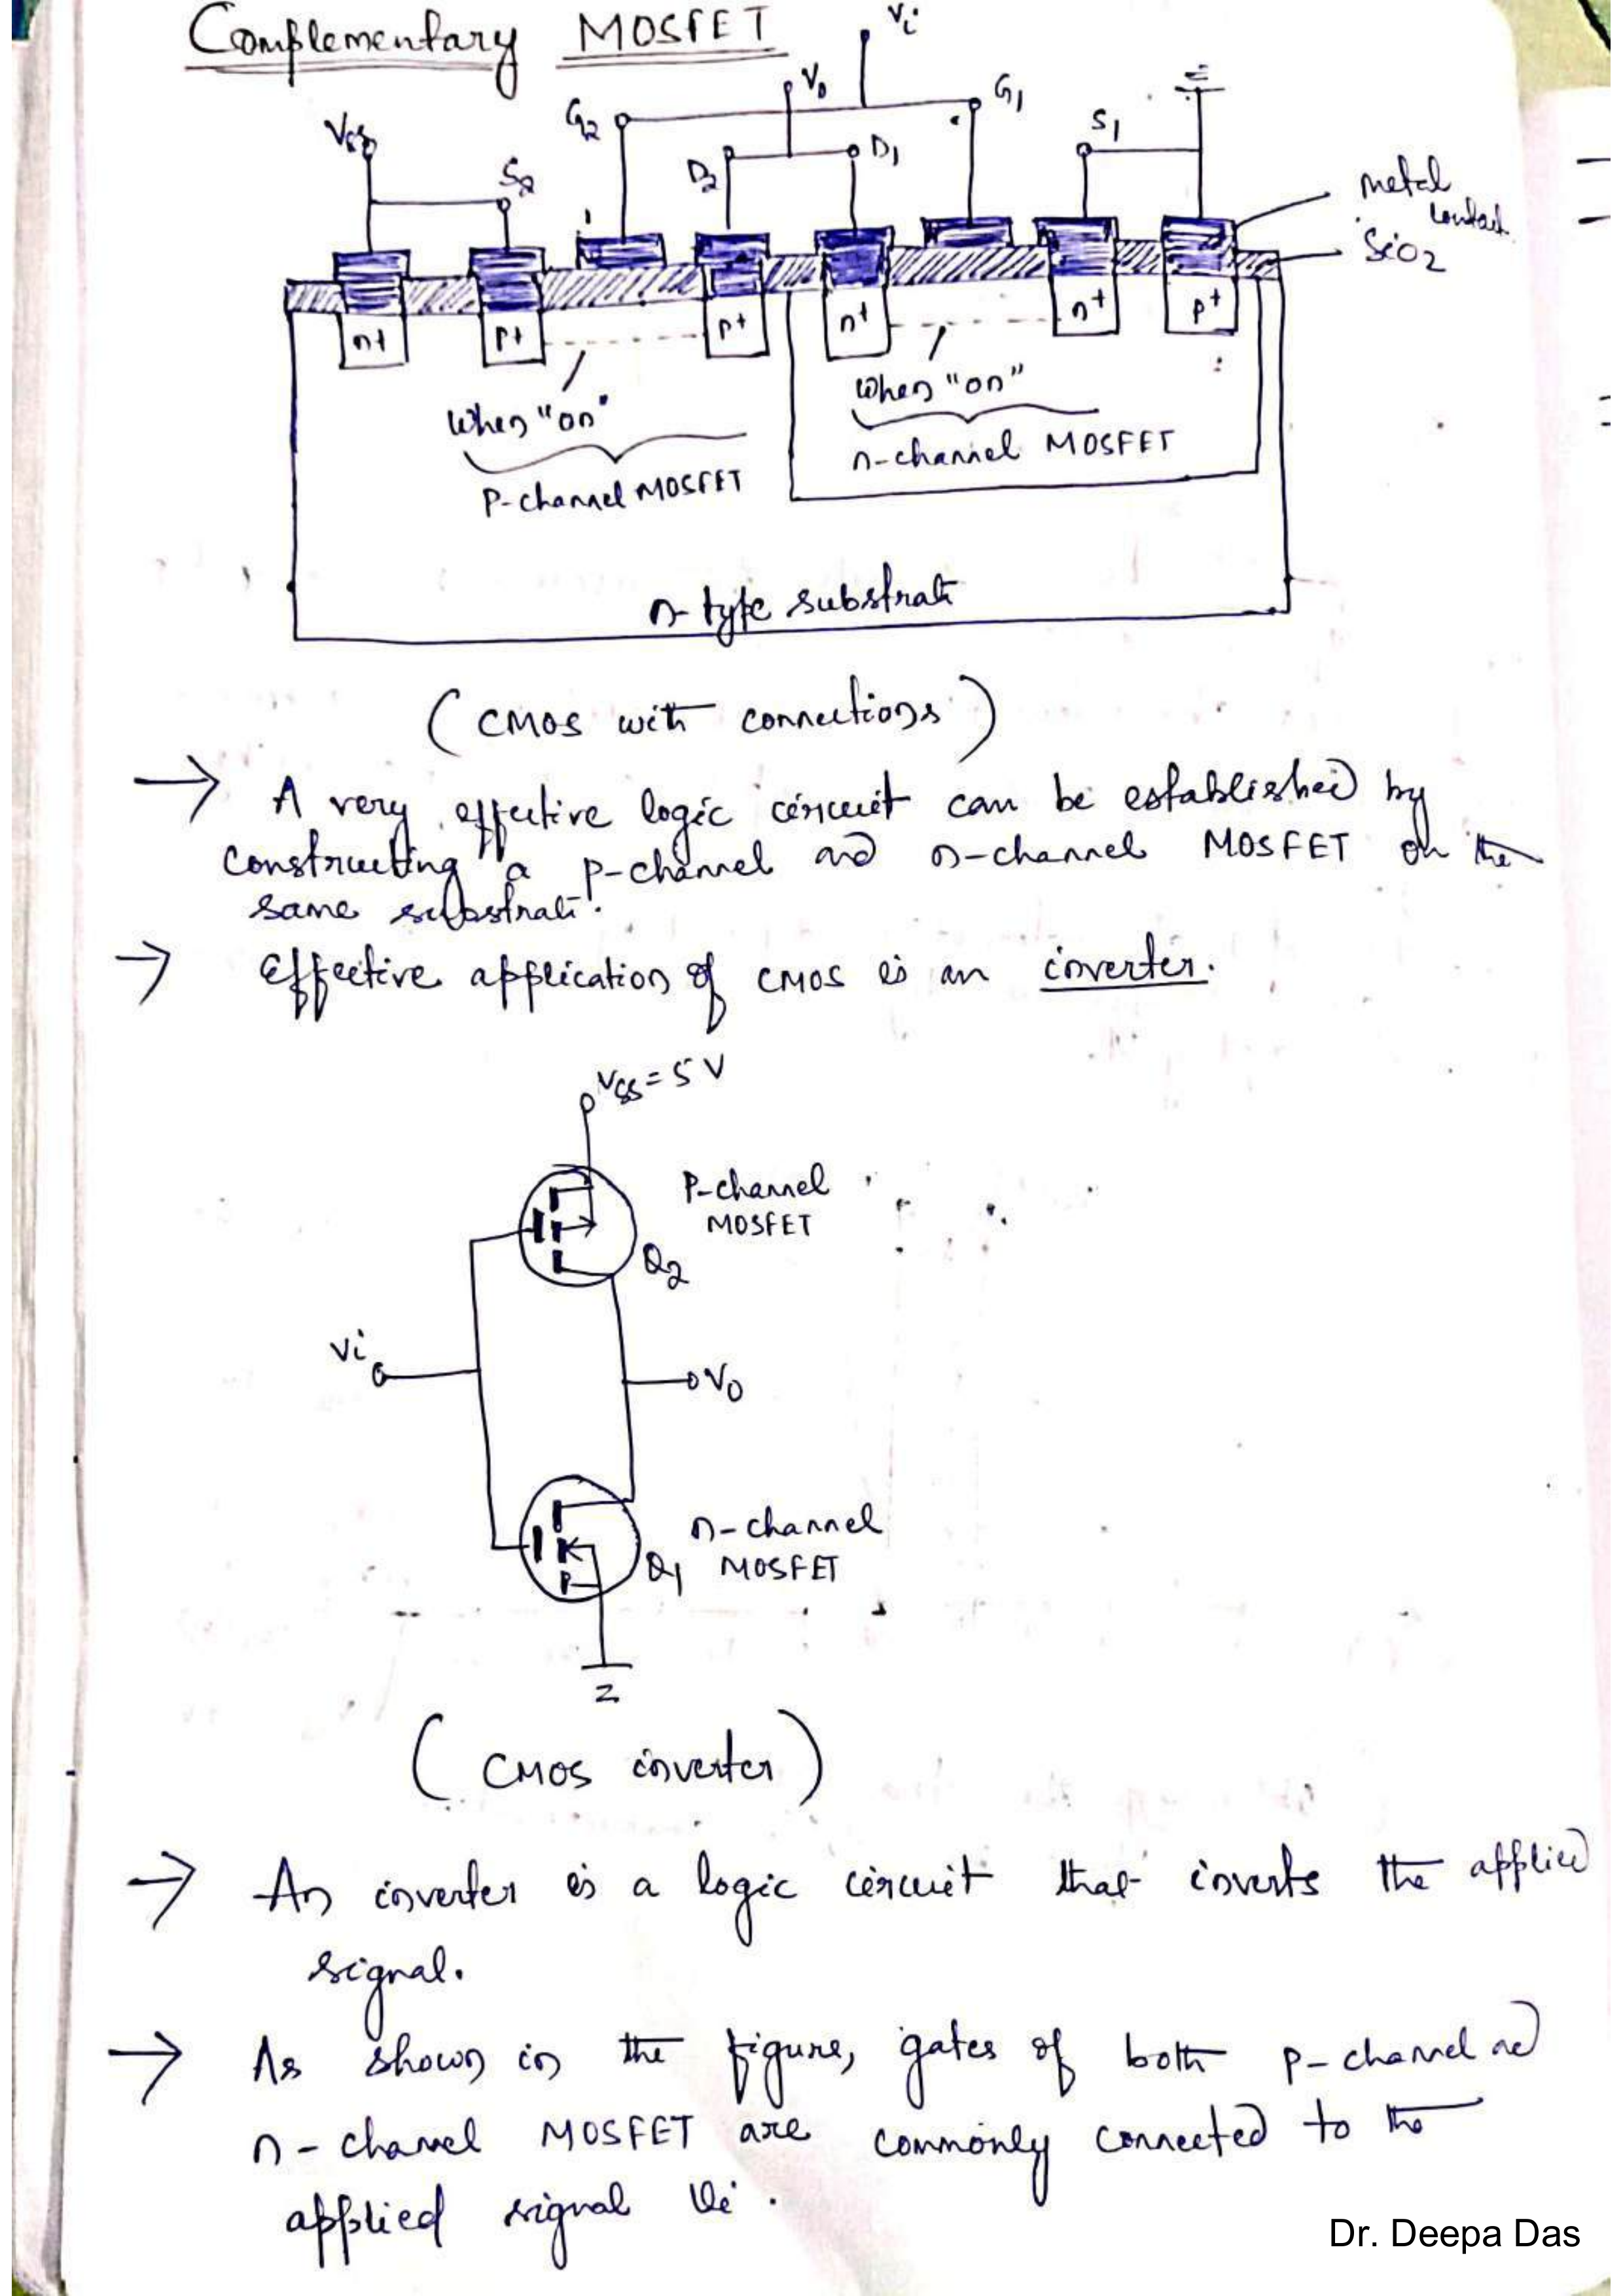 Complementary MOSFET
Vi
Vo
G2
G1
VSS
S2
D2
D1
S1
metal
contact
SiO2
n+
p+
p+
n+
n+
p+
When "on"
When "on"
P-channel MOSFET
n-channel MOSFET
n-type substrate
(CMOS with connections)
→ A very effective logic circuit can be established by
constructing a p-channel and n-channel MOSFET on the
same substrate.
→ Effective application of CMOS is an inverter.
VSS = 5 V
P-channel
MOSFET
Q2
Vi
Vo
n-channel
MOSFET
Q1
(CMOS inverter)
→ An inverter is a logic circuit that inverts the applied
signal.
→ As shown in the figure, gates of both p-channel and
n-channel MOSFET are commonly connected to the
applied signal Vi.
Dr. Deepa Das